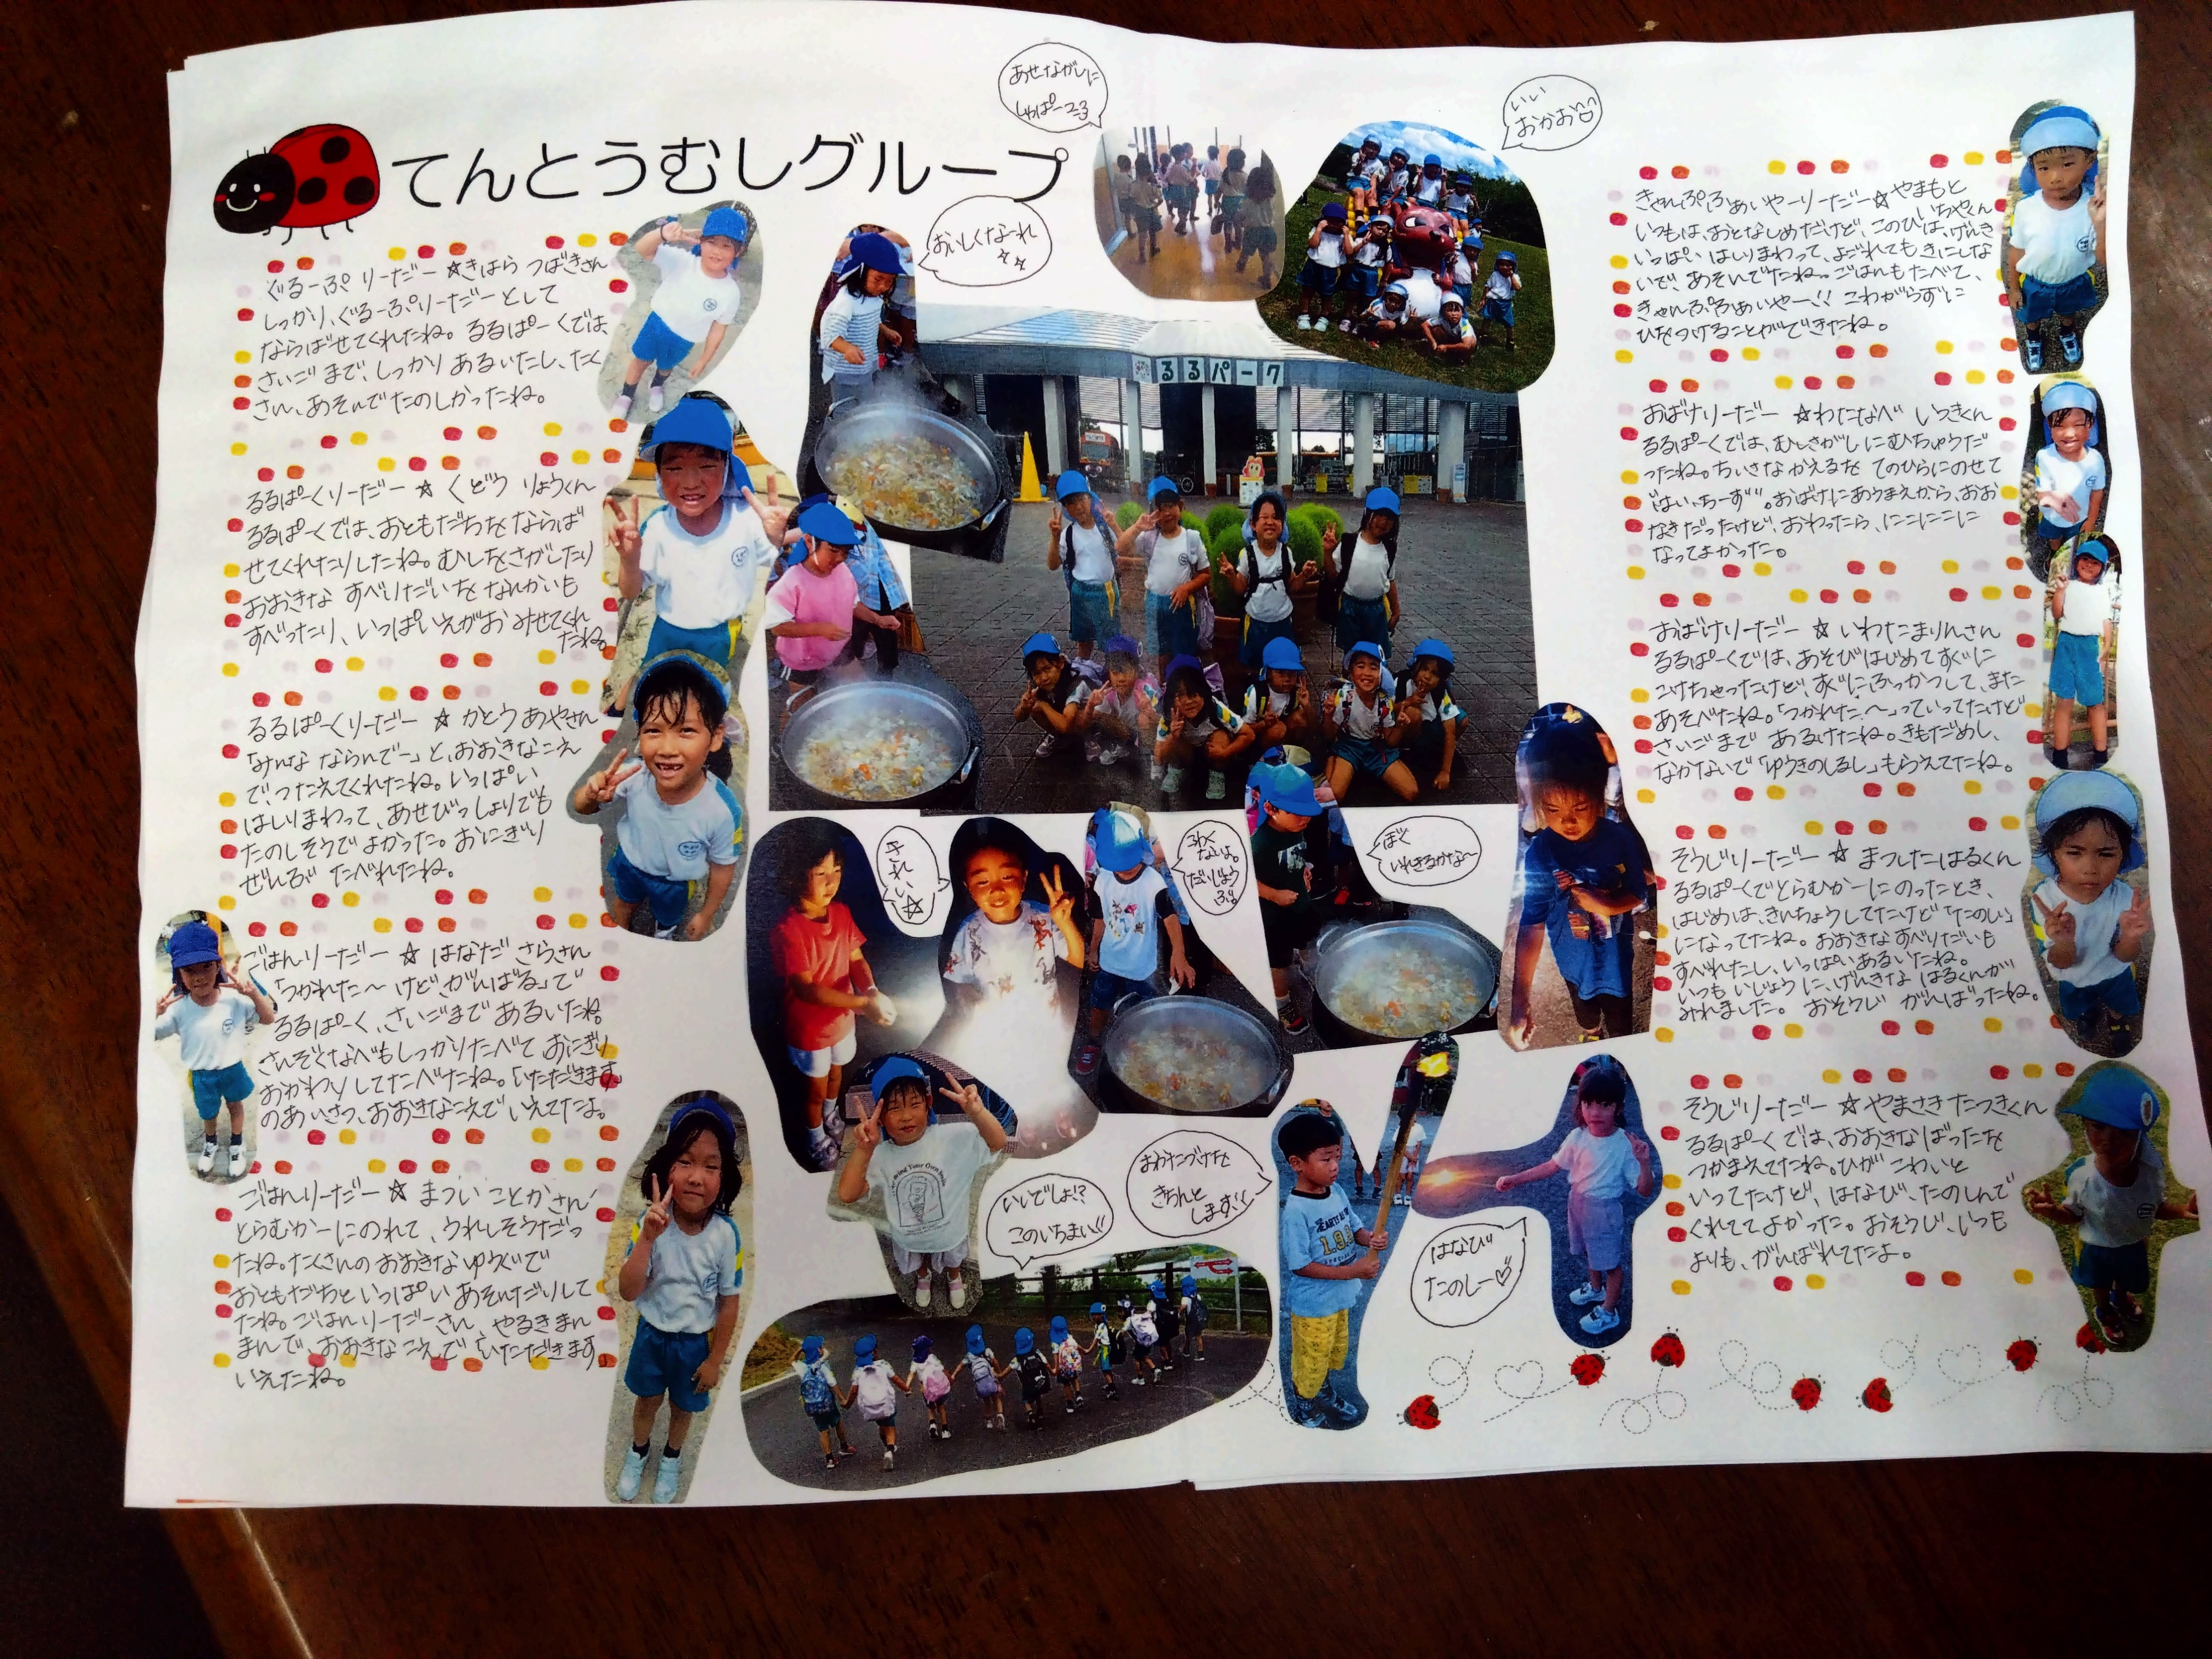 てんとうむしグループ
ぐるーぷ りーだー ☆きはら つばきさん
しっかり、ぐるーぷりーだーとして
ならばせてくれたね。るるぱーくでは
さいごまで、しっかり あるいたし、たく
さん、あそんでたのしかったね。
るるぱーくりーだー ☆ くどう りょうくん
るるぱーくでは、おともだちを ならば
せてくれたりしたね。むしをさがしたり
おおきな すべりだいを なんかいも
すべったり、いっぱいえがお みせてくれ
たね。
るるぱーくりーだー ☆ かとう あやさん
「みんな ならんでー」と、おおきなこえ
で、つたえてくれたね。いっぱい
はしりまわって、あせびっしょりでも
たのしそうで よかった。おにぎり
ぜんぶ たべれたね。
ごはんりーだー ☆ はなだ さらさん
「つかれた～ けどがんばる」で
るるぱーく、さいごまで あるいたね。
さんぞくなべもしっかりたべて おにぎり
おかわりしてたべたね。「いただきます」
のあいさつ、おおきなこえで いえてたよ。
ごはんりーだー ☆ まつい ことかさん
とらむかーにのれて、うれしそうだっ
たね。たくさんの おおきな ゆうぐで
おともだちと いっぱい あそんだりして
たね。ごはんりーだーさん、やるきまん
まんで、おおきな こえで「いただきます」
いえたね。
あせながしに
しゅぱーっ
いい
おかお
おいしくなーれ
るるパーク
きれい☆
こわく
ないよ。
だいじょう
ぶ
ぼく
いれきるかな～
いいでしょ!?
このいちまい!!
おかたづけを
きちんと
します!!
はなび
たのしー♡
きゃんぷふぁいやーりーだー☆やまもと
いちやくん
いつもは、おとなしめだけど、このひは、げんき
いっぱい はしりまわって、よごれてもきにしな
いで、あそんでたね。ごはんもたべて、
きゃんぷふぁいやー!! こわがらずに
ひをつけることができたね。
おばけりーだー ☆わたなべ いつきくん
るるぱーくでは、むしさがしにむちゅうだ
ったね。ちいさなかえるを てのひらにのせて
「はい、ちーず」。おばけにあうまえから、おお
なきだったけど、おわったら、にこにこに
なってよかった。
おばけりーだー ☆ いわたまりんさん
るるぱーくでは、あそびはじめてすぐに
こけちゃったけど、すぐにふっかつして、また
あそべたね。「つかれた～」っていってたけど
さいごまで あるけたね。きもだめし、
なかないで「ゆうきのしるし」もらえてたね。
そうじりーだー ☆ まつしたはるくん
るるぱーくでとらむかーにのったとき、
はじめは、きんちょうしてたけど「たのしい」
になってたね。おおきなすべりだいも
すべれたし、いっぱいあるいたね。
いつも いじょうに、げんきな はるくんが
みれました。おそうじ がんばったね。
そうじりーだー ☆ やまさき たつきくん
るるぱーくでは、おおきなばったを
つかまえてたね。ひが こわいと
いってたけど、はなび、たのしんで
くれててよかった。おそうじ、いつも
よりも、がんばれてたよ。